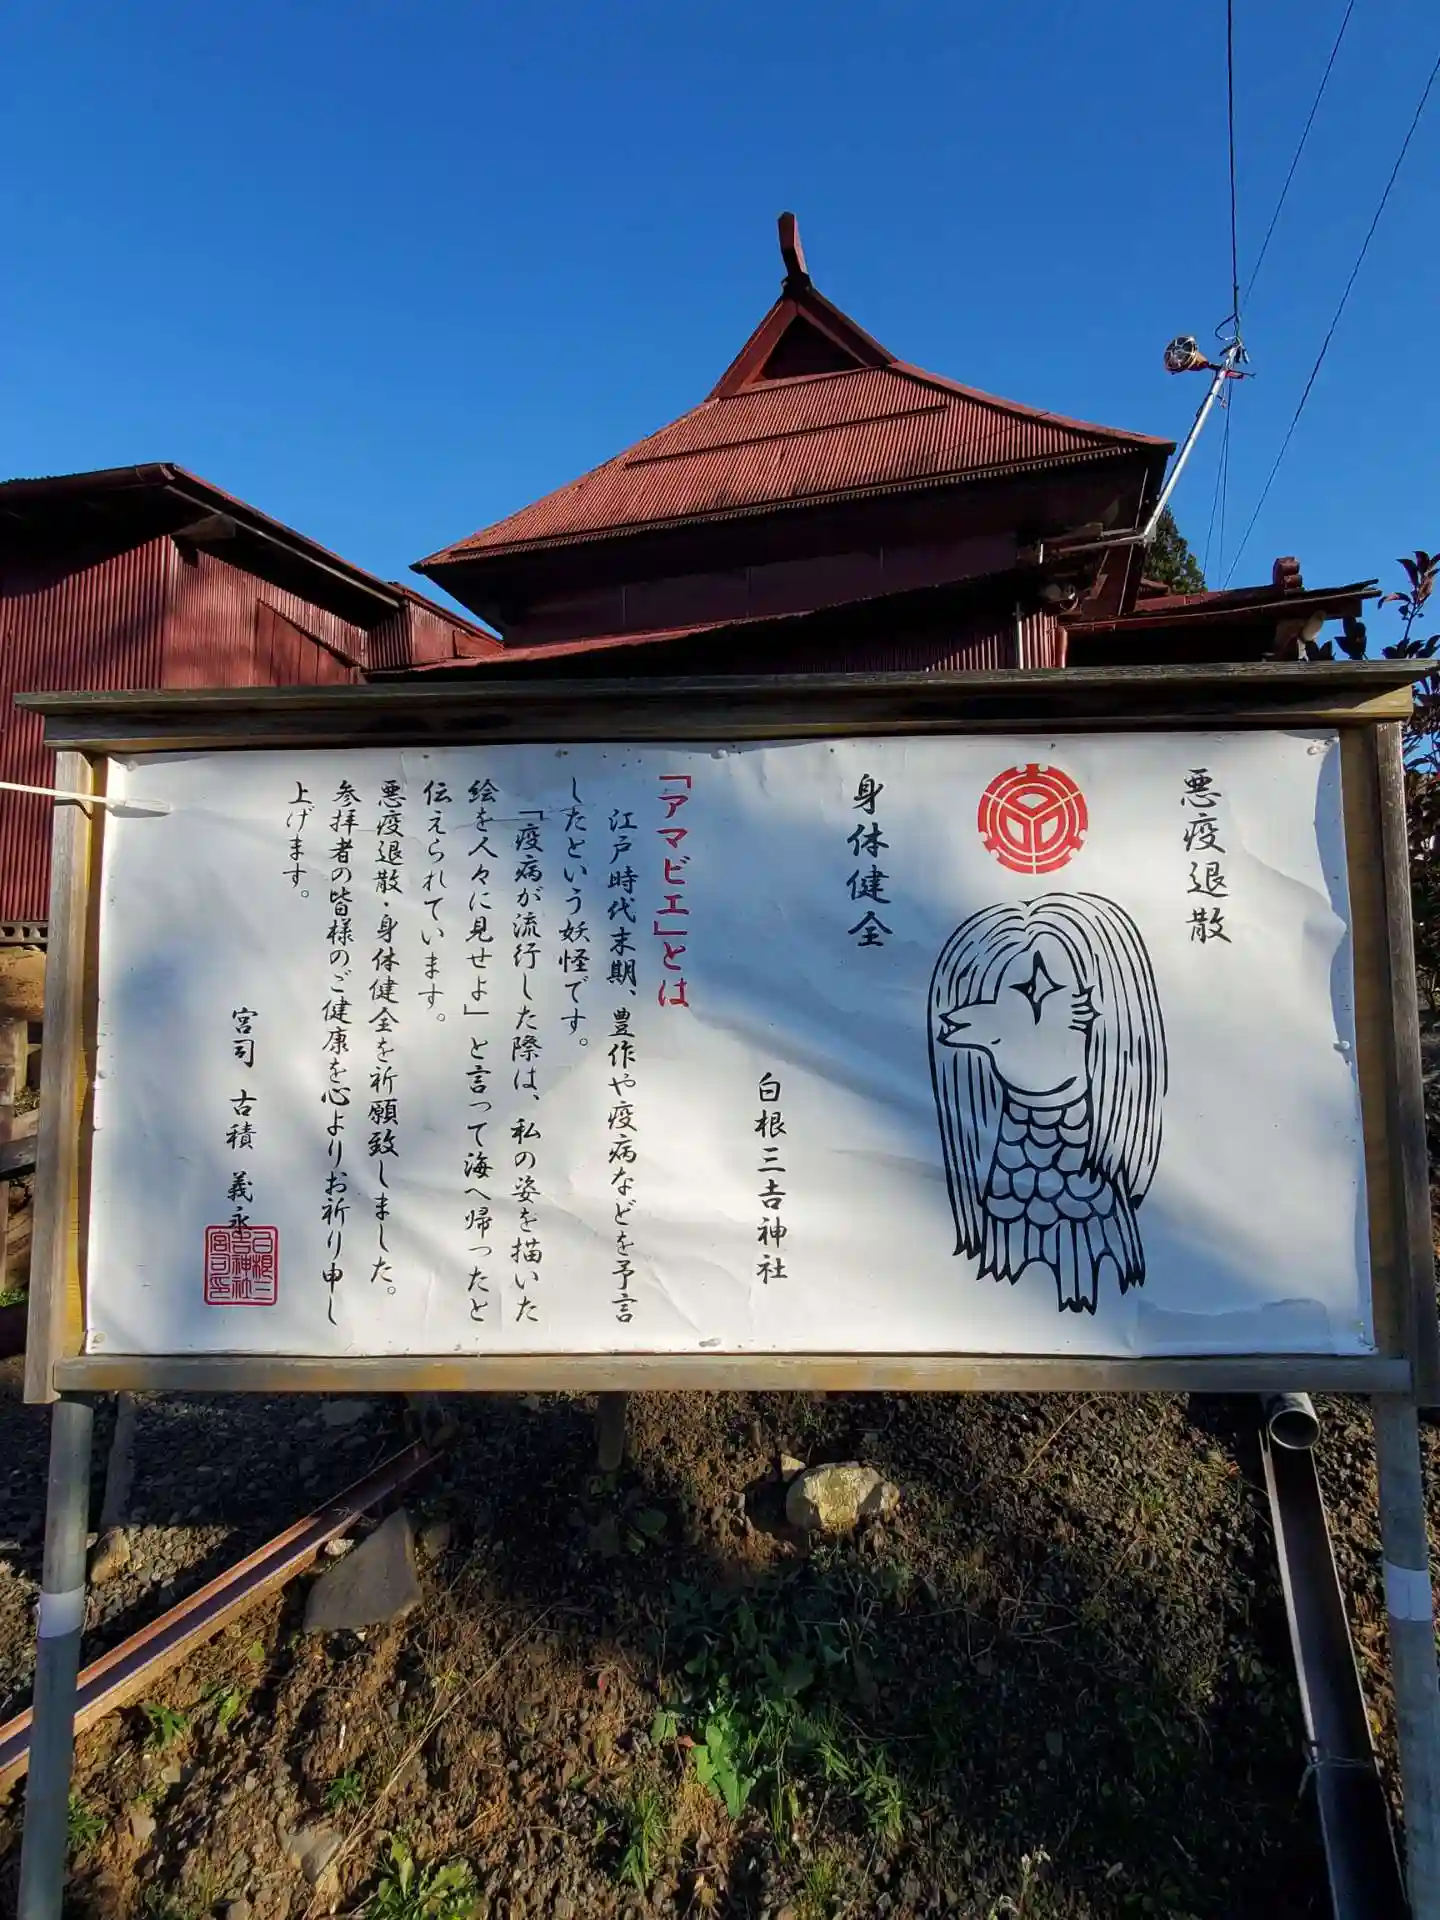 悪疫退散
身体健全
白根三吉神社
「アマビエ」とは
江戸時代末期、豊作や疫病などを予言
したという妖怪です。
「疫病が流行した際は、私の姿を描いた
絵を人々に見せよ」と言って海へ帰ったと
伝えられています。
悪疫退散・身体健全を祈願致しました。
参拝者の皆様のご健康を心よりお祈り申し
上げます。
宮司 古積 義永
白根三
吉神社
宮司印